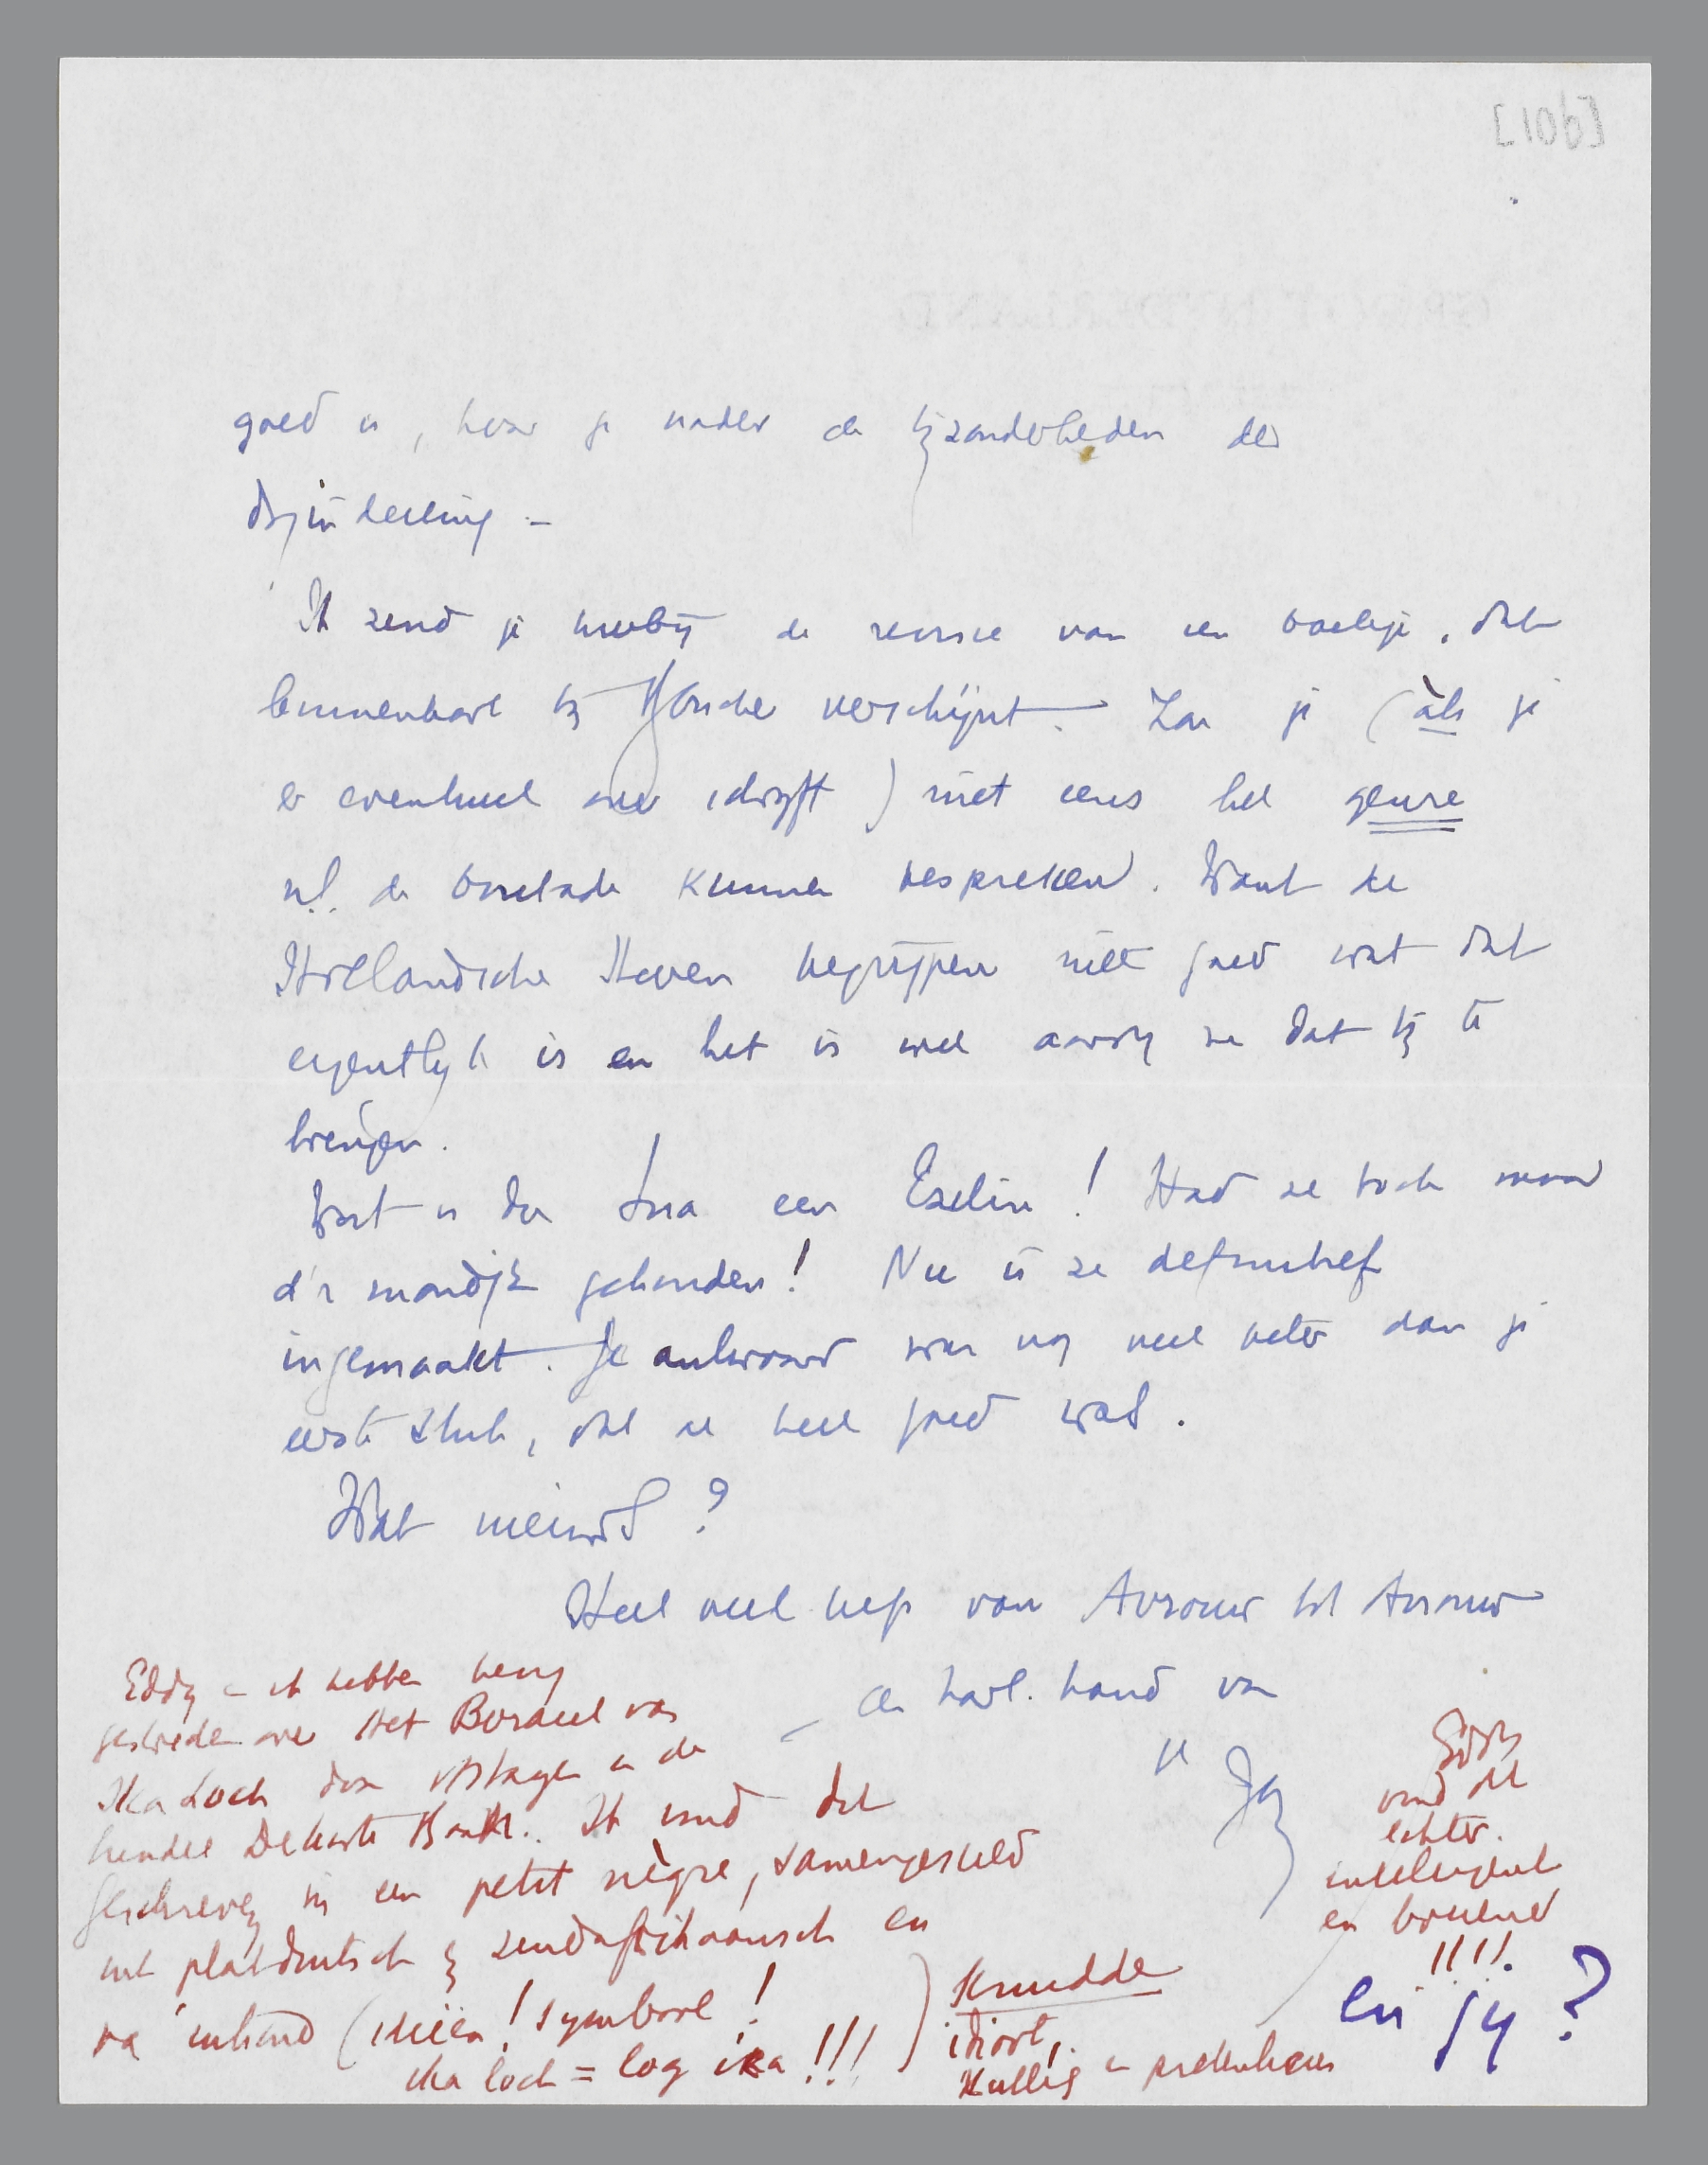 [106]
goed is, hoor je nader de bijzonderheden der
dryindeeling –
Ik zend je hierbij de revisie van een boekje, dat
binnenkort bij Boucher verschijnt. Zou je (àls je
er eventueel over schrijft) niet eens het genre
nl. de ballade kunnen bespreken. Want de
Hollandsche Heeren begrijpen niet goed wat dat
eigentlijk is en het is wel aardig ze dat bij te
brengen.
Wat is die Ina een Ezelin! Had ze toch maar
d'r mondje gehouden! Nu is ze definitief
ingemaakt. Je antwoord was nog veel beter dan je
eerste stuk, dat al heel goed was.
Wat nieuws?
Heel veel liefs van Avrouw tot Avrouw
– de hart. hand van
je
Eddy en ik hebben hevig
gestreden over Het Bordeel van
Ika Loch door Vestdijk in de
bundel De korte Baan. Ik vind dat
geschreven in een petit nègre, samengesteld
uit platduitsch & zuidafrikaansch en
qua inhoud (ideeën! symbool!
ika loch = log ika!!!)
Knudde
idioot,
Kullig en pretentieus
Eddy
vond dit
echter
intelligent
en boeiend
!!!!
en jy?